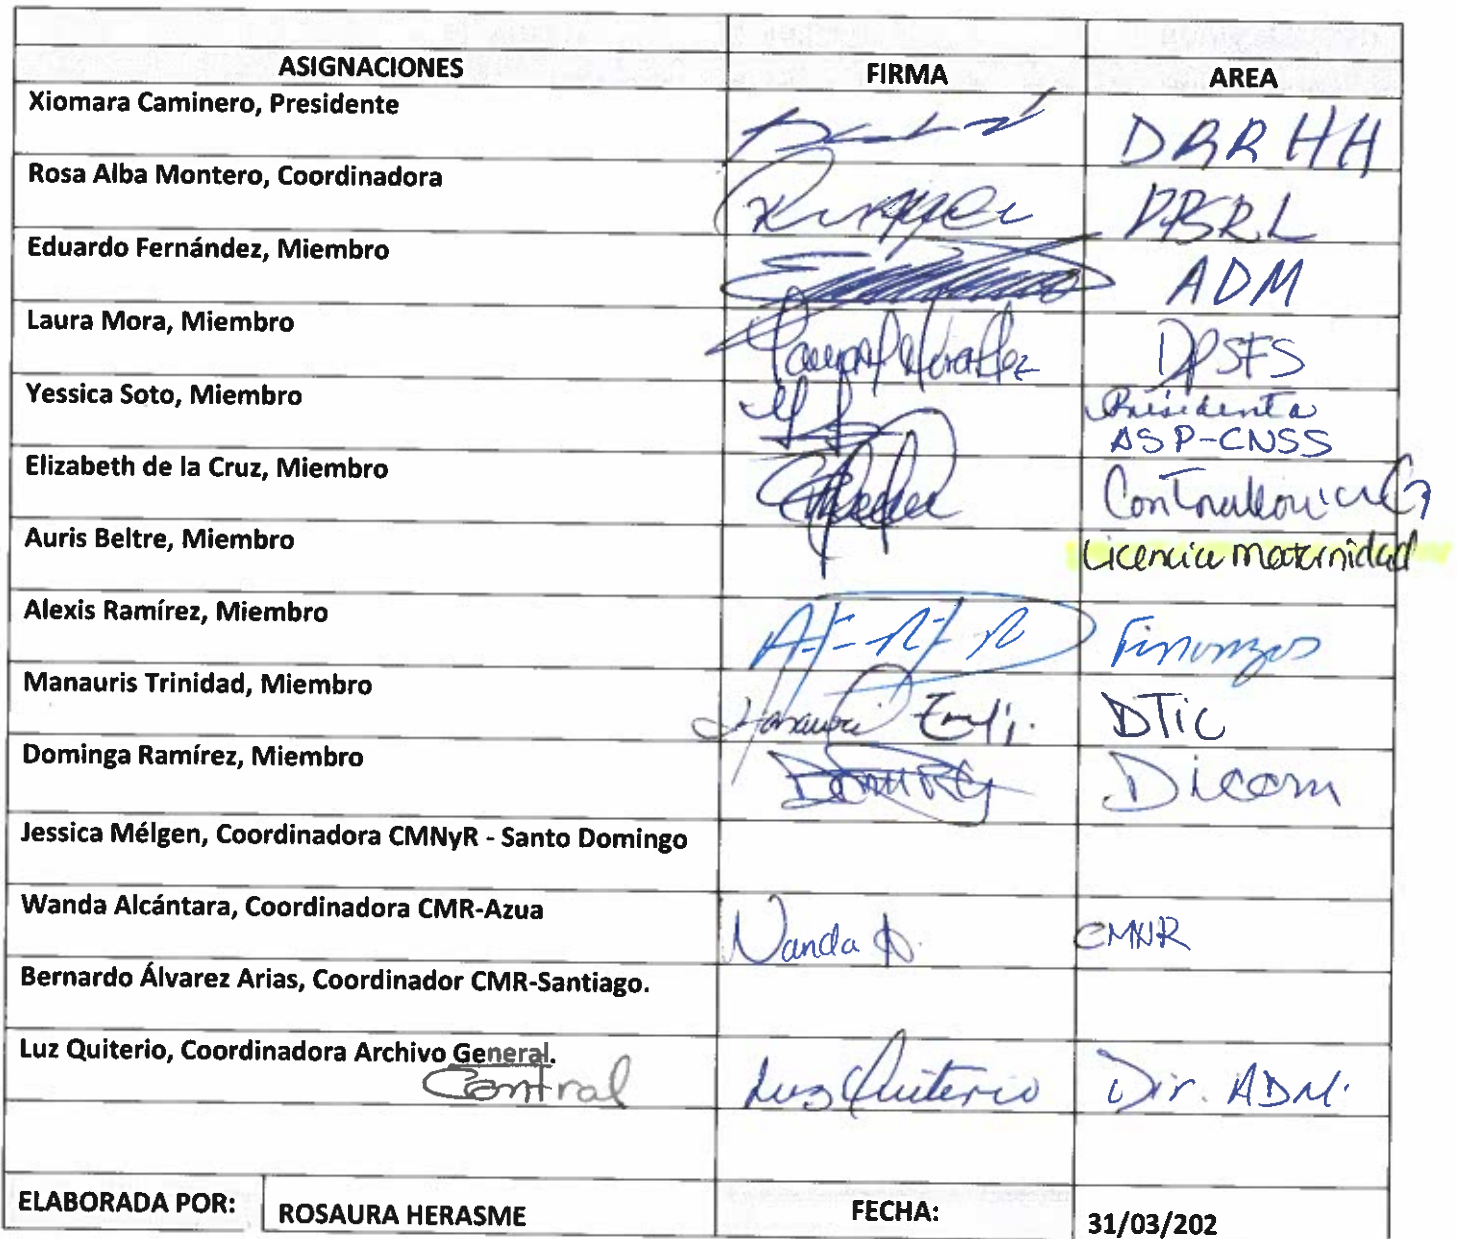 ASIGNACIONES FIRMA AREA
Xiomara Caminero, Presidente DRRHH
Rosa Alba Montero, Coordinadora
Eduardo Fernández, Miembro ADM
Laura Mora, Miembro DPSFS
Yessica Soto, Miembro Presidenta
ASP-CNSS
Elizabeth de la Cruz, Miembro Contraloria G
Auris Beltre, Miembro Licencia maternidad
Alexis Ramírez, Miembro Finanzas
Manauris Trinidad, Miembro DTIC
Dominga Ramírez, Miembro Dicom
Jessica Mélgen, Coordinadora CMNyR - Santo Domingo
Wanda Alcántara, Coordinadora CMR-Azua Wanda A. CMNR
Bernardo Álvarez Arias, Coordinador CMR-Santiago.
Luz Quiterio, Coordinadora Archivo General.
Central Luz Quiterio Dir. ADM.
ELABORADA POR: ROSAURA HERASME FECHA: 31/03/202